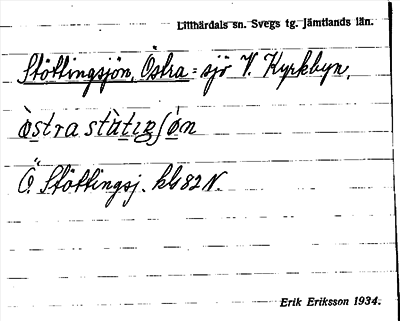 Lillhärdals sn. Svegs tg. Jämtlands län.
Stöttingsjön, Östra = sjö V. Kyrkbyn.
östra stötiŋʃön
Ö. Stöttingsj. kbl 82 N.
Erik Eriksson 1934.